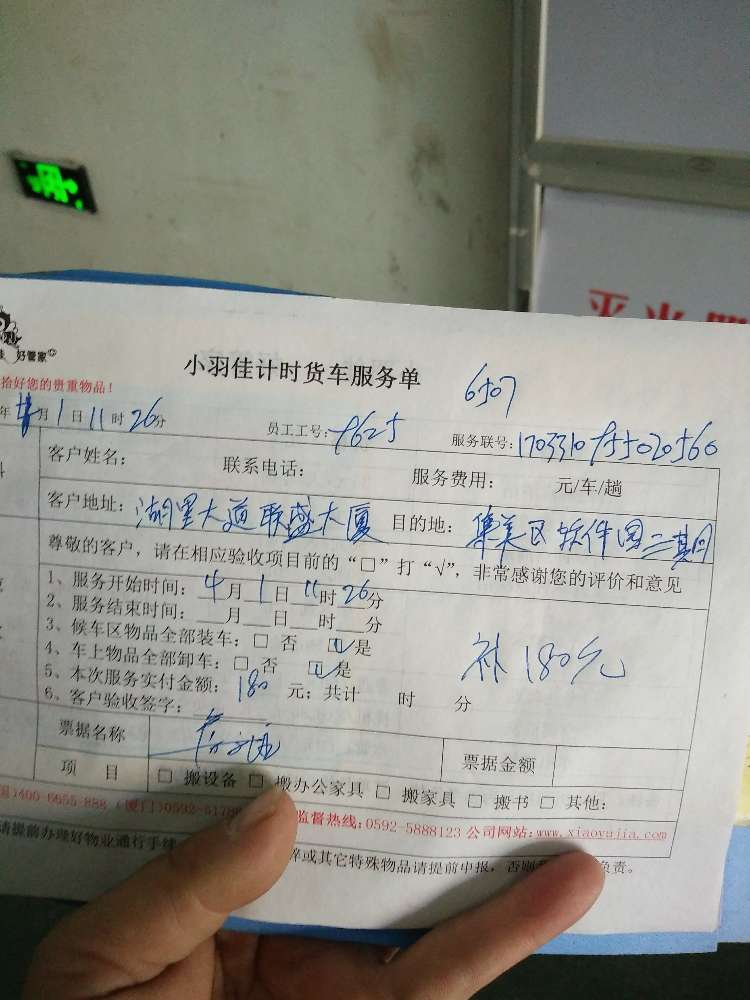 好管家
小羽佳计时货车服务单
6507
拾好您的贵重物品！
年 4月1日11时26分
员工工号：9625
服务联号：
客户姓名： 联系电话： 服务费用： 元/车/趟
客户地址：湖里大道联盛大厦 目的地：集美区软件园三期
尊敬的客户，请在相应验收项目前的“□”打“√”，非常感谢您的评价和意见
1、服务开始时间：4月1日11时26分
2、服务结束时间：___月___日___时___分
3、候车区物品全部装车：□ 否 ☑是
4、车上物品全部卸车：□ 否 ☑是
补180元
5、本次服务实付金额：180 元；共计 时 分
6、客户验收签字：
票据名称 票据金额
项 目 □ 搬设备 □ 搬办公家具 □ 搬家具 □ 搬书 □ 其他：
国)400-6655-888 (厦门)0592-5178 监督热线：0592-5888123 公司网站：www.xiaoyujia.com
请提前办理好物业通行手续
碎或其它特殊物品请提前申报，否则 负责。